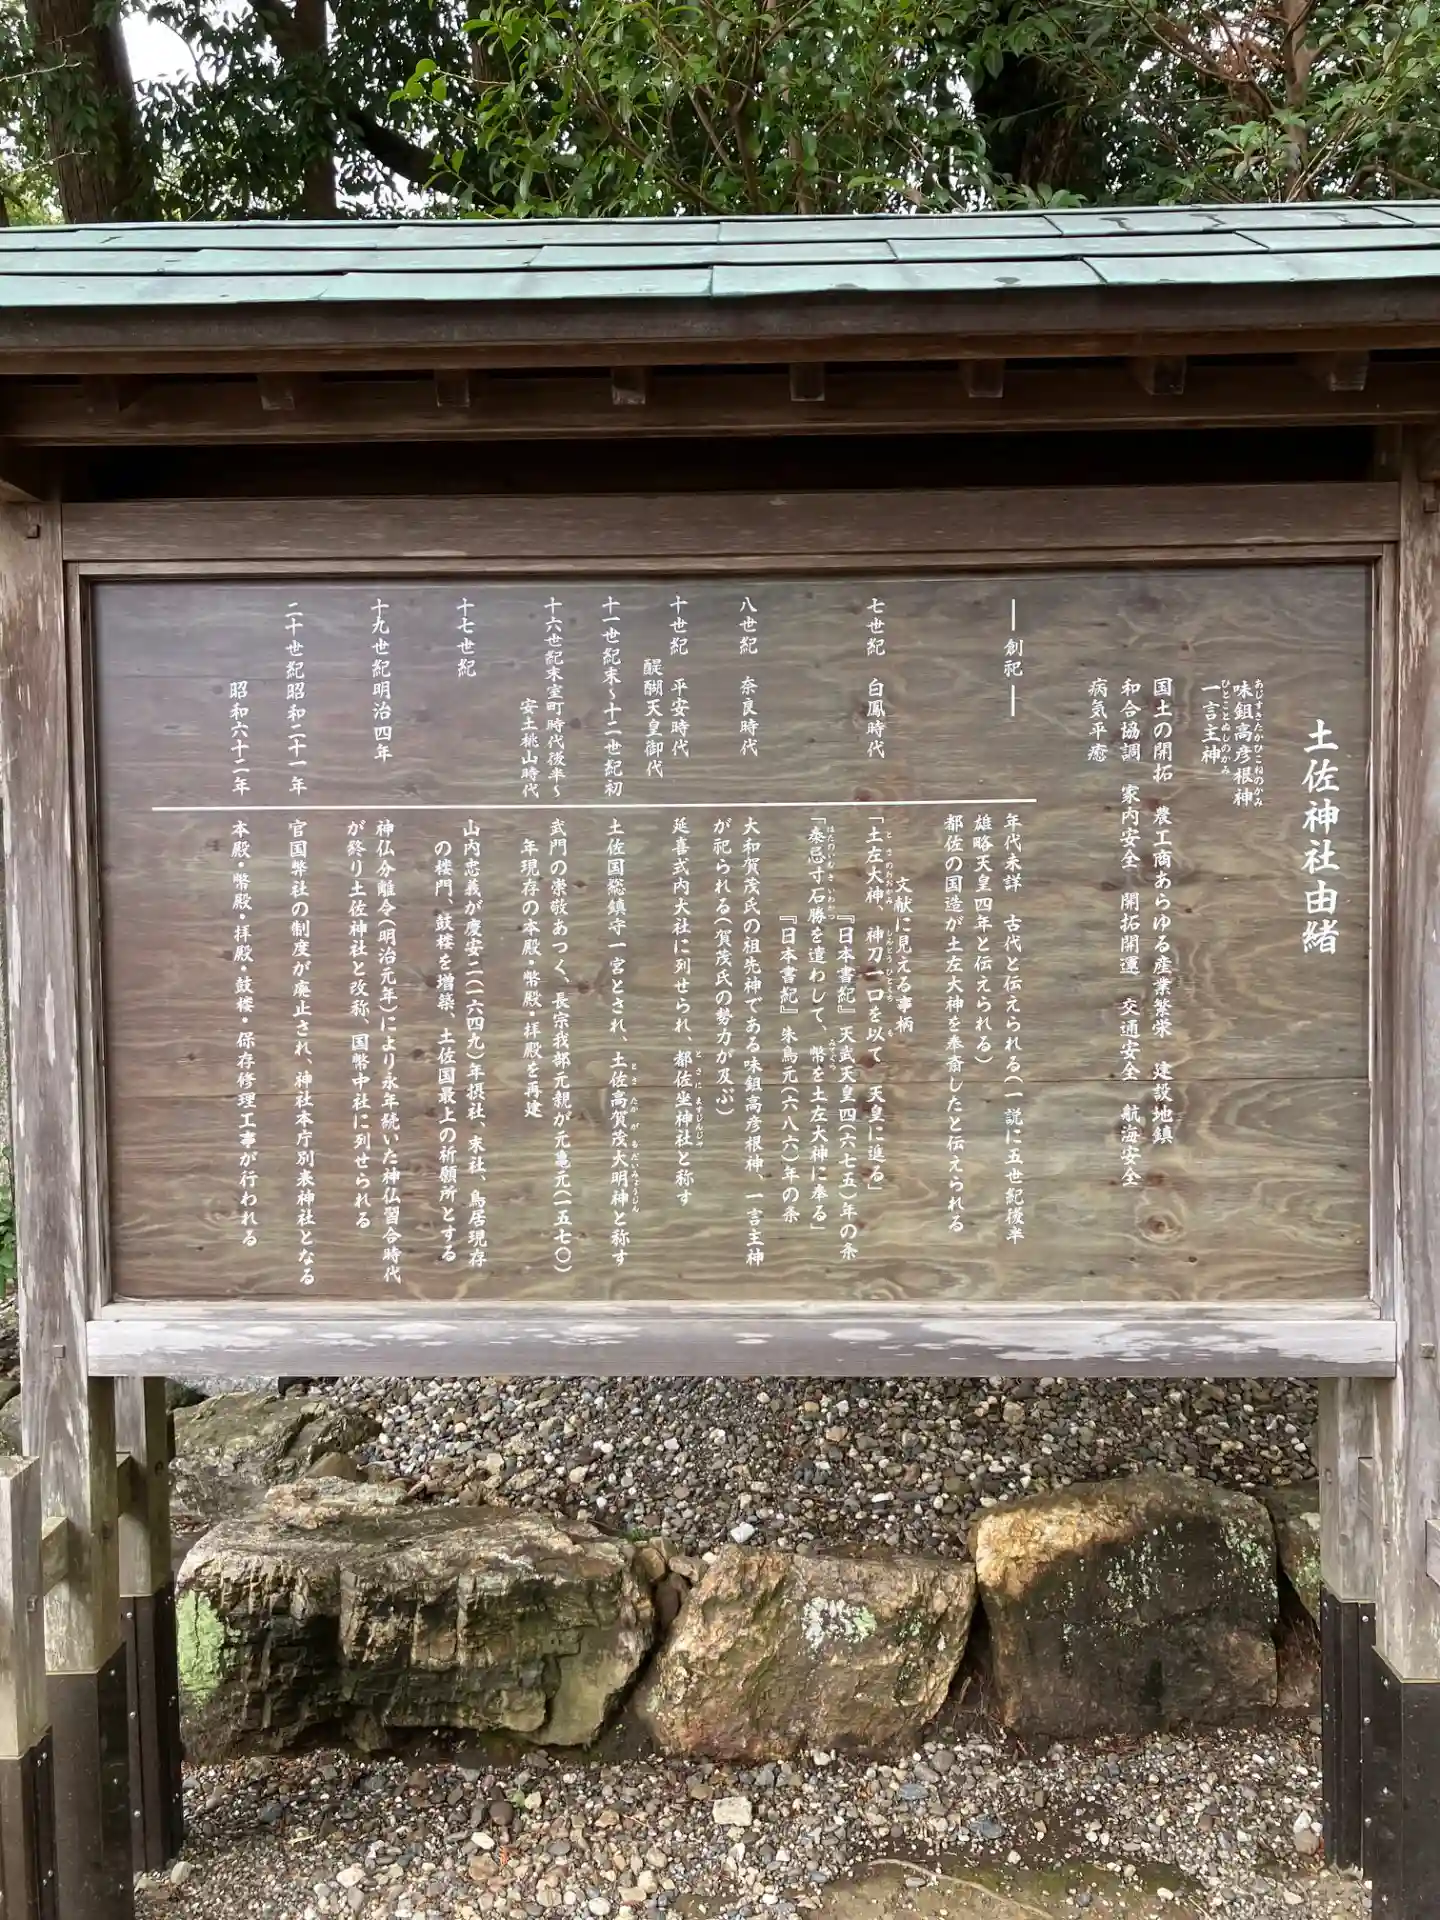 土佐神社由緒
味鉏高彦根神
あじすきたかひこねのかみ
一言主神
ひとことぬしのかみ
国土の開拓　農工商あらゆる産業繁栄　建設地鎮
和合協調　家内安全　開拓開運　交通安全　航海安全
病気平癒
― 創祀 ―
年代未詳　古代と伝えられる(一説に五世紀後半
雄略天皇四年と伝えられる)
都佐の国造が土左大神を奉斎したと伝えられる
七世紀　白鳳時代
文献に見える事柄
「土左大神、神刀一口を以て　天皇に進る」
とさのおおかみ　しんとうひとくち　も
『日本書紀』天武天皇四(六七五)年の条
「秦忌寸石勝を遣わして、幣を土左大神に奉る」
はたのいむきいわかつ　みてぐら
『日本書紀』朱鳥元(六八六)年の条
八世紀　奈良時代
大和賀茂氏の祖先神である味鉏高彦根神、一言主神
が祀られる(賀茂氏の勢力が及ぶ)
十世紀　平安時代
醍醐天皇御代
延喜式内大社に列せられ、都佐坐神社と称す
とさにますじんじゃ
十一世紀末～十二世紀初
土佐国総鎮守一宮とされ、土佐高賀茂大明神と称す
とさたかがもだいみょうじん
十六世紀末室町時代後半～
安土桃山時代
武門の崇敬あつく、長宗我部元親が元亀元(一五七〇)
年現存の本殿・幣殿・拝殿を再建
十七世紀
山内忠義が慶安二(一六四九)年摂社、末社、鳥居現存
の楼門、鼓楼を増築、土佐国最上の祈願所とする
十九世紀明治四年
神仏分離令(明治元年)により永年続いた神仏習合時代
が終り土佐神社と改称、国幣中社に列せられる
二十世紀昭和二十一年
官国幣社の制度が廃止され、神社本庁別表神社となる
昭和六十二年
本殿・幣殿・拝殿・鼓楼・保存修理工事が行われる